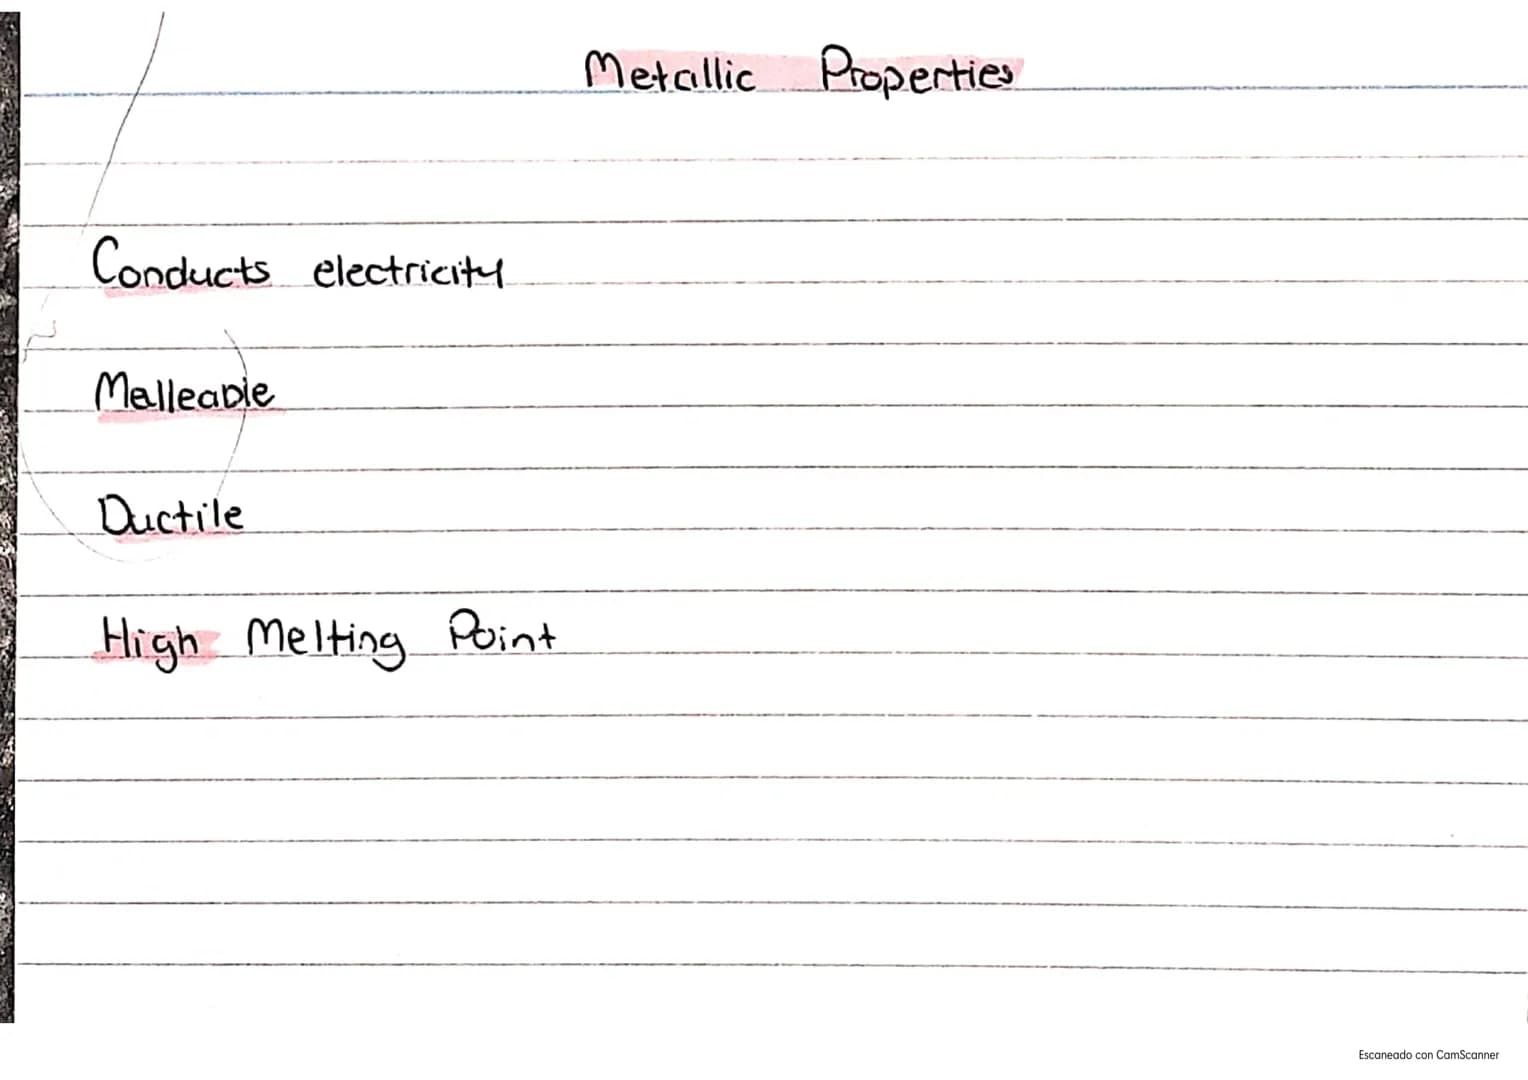 Metallic Properties
Conducts electricity
Malleable
Ductile
High Melting Point
Escaneado con CamScanner